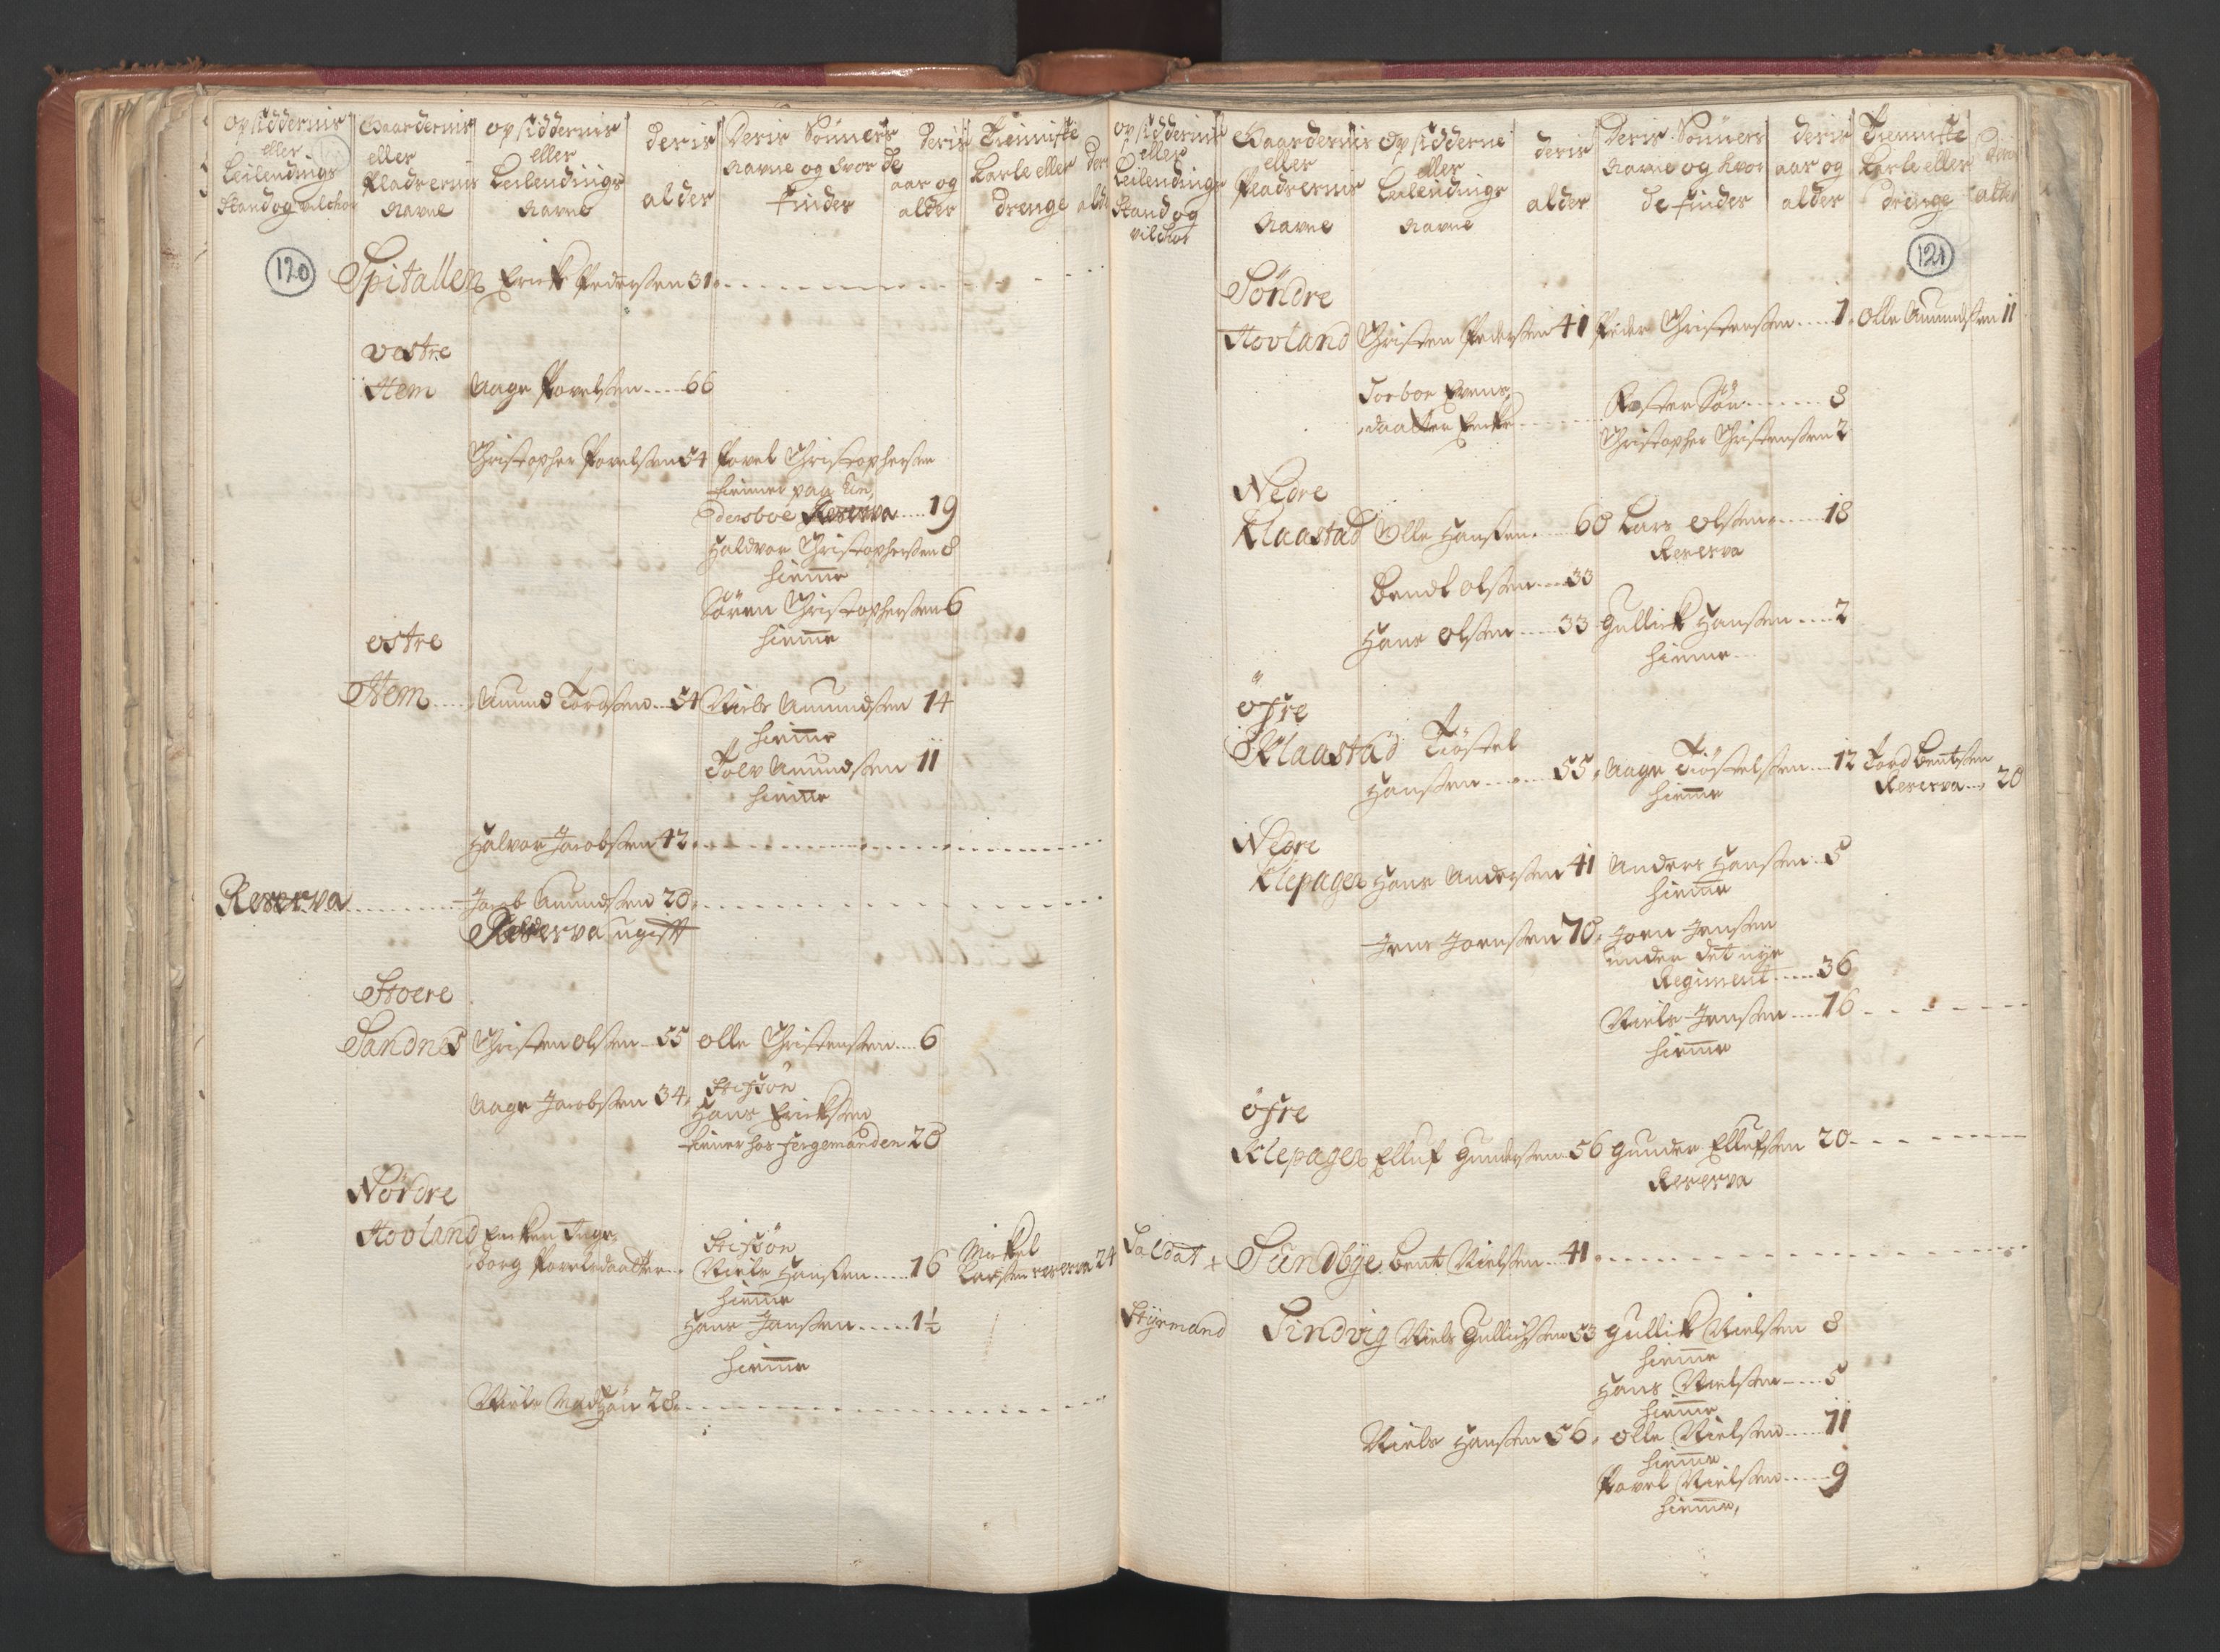 opsiddernis eller Leilendings Stand og vilchor
Gaardernis eller Pladzernis Navne
opsiddernis eller Leilendings Navne
deris alder
Deris Sönners Navne og hvor de tiender
deris aar og alder
Tienniste Karle eller drenge
120
Spitallen Erick Pedersen 31
vestre
Hem Aage Povelsen 66
Christopher Povelsen 54 Povel Christophersen
tienner paa
Reserva 19
Haldvor Christophersen 8
hiemme
Sören Christophersen 6
hiemme
østre
Hem Amund Tordsen 54 Niels Amundsen 14
hiemme
Tolv Amundsen 11
hiemme
Halvor Jacobsen 42
Reserva Jacob Amundsen 20
Reserva ugift
Stoere
Sandnes Christen olsen 55 olle Christensen 6
Aage Jacobsen 34 Stifsön
Hans Ericksen
tiener hos fergemanden 20
Nördre
Hovland Encken Inge-
borg Povelsdaatter
Stifsön
Niels Hansen 16
hiemme
Mickel
Larsen reserva 24
Hans Jansen 1½
hiemme
Niels Madsön 28
opsiddernis eller Leilendings Stand og vilchor
Gaardernis eller Pladzernis Navne
Opsidderne eller Leilendings Navne
deris alder
Deris Sönners Navne og hvor de tiender
deris aar og alder
Tienniste Karle eller drenge
121
Söndre
Hovland Christen Pedersen 41 Peder Christensen 1 Olle Amundsen 11
Torbor Evens-
daatter Encke
Foster Sön 8
Christopher Christensen 2
Nedre
Klaastad Olle Hansen 60 Lars olsen 18
Reserva
Bendt olsen 33
Hans olsen 33 Gullick Hansen 2
hiemme
öfre
Klaastad Kiöstel
Hansen 55 Aage Kiöstelsen 12 Tord Bentsen
hiemme Reserva 20
Nedre
Klepager Hans Andersen 41 Anders Hansen 5
hiemme
Jens Joensen 70 Joen Jensen
under det nye
Regiment 36
Niels Jensen 16
hiemme
öfre
Klepager Elluf Gundersen 56 Gunder Ellufsen 20
Reserva
Saldat + Sundbye Bent Nielsen 41
Styrmand Sindvig Niels Gullichsen 53 Gullick Nielsen 8
hiemme
Hans Nielsen 5
hiemme
Niels Hansen 56 olle Nielsen 11
hiemme
Povel Nielsen 9
hiemme